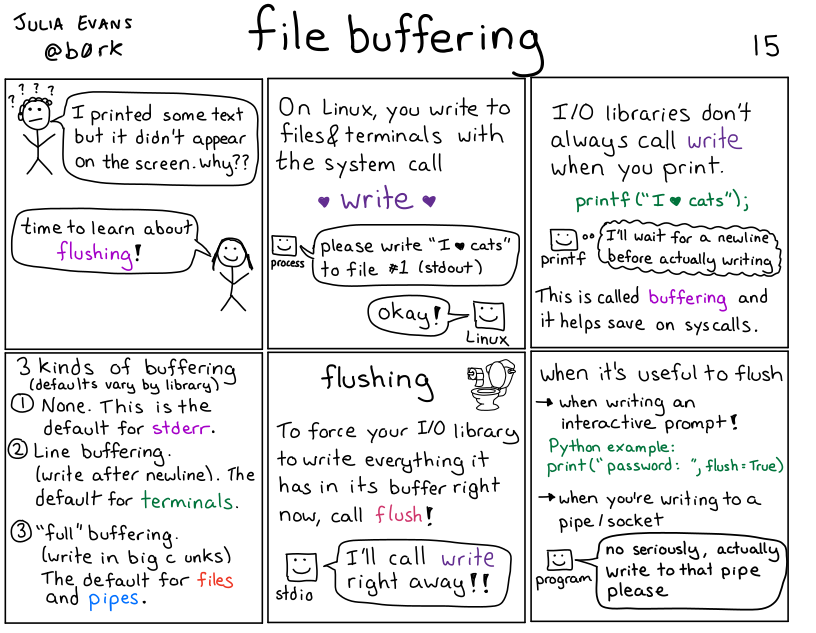 JULIA EVANS
@b0rk
file buffering
15
? ? ? ?
I printed some text
but it didn't appear
on the screen. why??
time to learn about
flushing!
On Linux, you write to
files & terminals with
the system call
♥ write ♥
process
please write "I ♥ cats"
to file #1 (stdout)
okay!
Linux
I/O libraries don't
always call write
when you print.
printf("I ♥ cats");
printf
I'll wait for a newline
before actually writing
This is called buffering and
it helps save on syscalls.
3 kinds of buffering
(defaults vary by library)
① None. This is the
default for stderr.
② Line buffering.
(write after newline). The
default for terminals.
③ "full" buffering.
(write in big c unks)
The default for files
and pipes.
flushing
To force your I/O library
to write everything it
has in its buffer right
now, call flush!
stdio
I'll call write
right away!!
when it's useful to flush
→ when writing an
interactive prompt!
Python example:
print("password: ", flush=True)
→ when you're writing to a
pipe/socket
program
no seriously, actually
write to that pipe
please